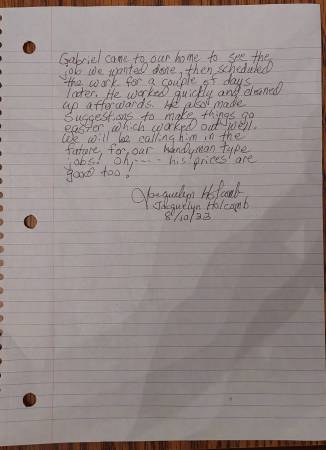 Gabriel came to our home to see the
job we wanted done, then scheduled
the work for a couple of days
later. He worked quickly and cleaned
up afterwards. He also made
suggestions to make things go
easier, which worked out well.
We will be calling him in the
future, for our handyman type
jobs. Oh, ---- his prices are
good too!
Jacquelyn Holcomb
Jacquelyn Holcomb
8/10/23